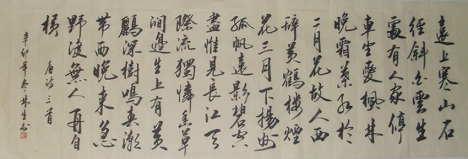 遠上寒山石
徑斜白雲生
處有人家停
車坐愛楓林
晚霜葉紅於
二月花故人西
辭黄鶴樓煙
花三月下揚州
孤帆遠影碧空
盡惟見長江天
際流獨憐幽草
澗邊生上有黄
鸝深樹鳴春潮
帶雨晚来急
野渡無人舟自
横 唐诗三首
辛卯年冬林生书